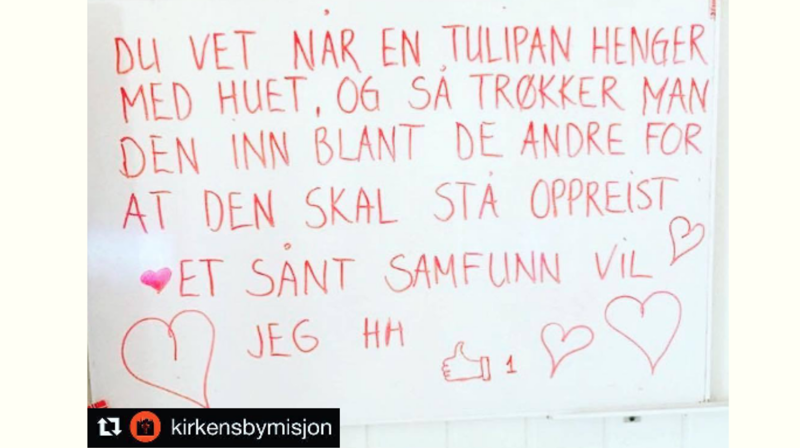 DU VET NÅR EN TULIPAN HENGER
MED HUET, OG SÅ TRØKKER MAN
DEN INN BLANT DE ANDRE FOR
AT DEN SKAL STÅ OPPREIST
ET SÅNT SAMFUNN VIL
JEG HH
1
kirkensbymisjon